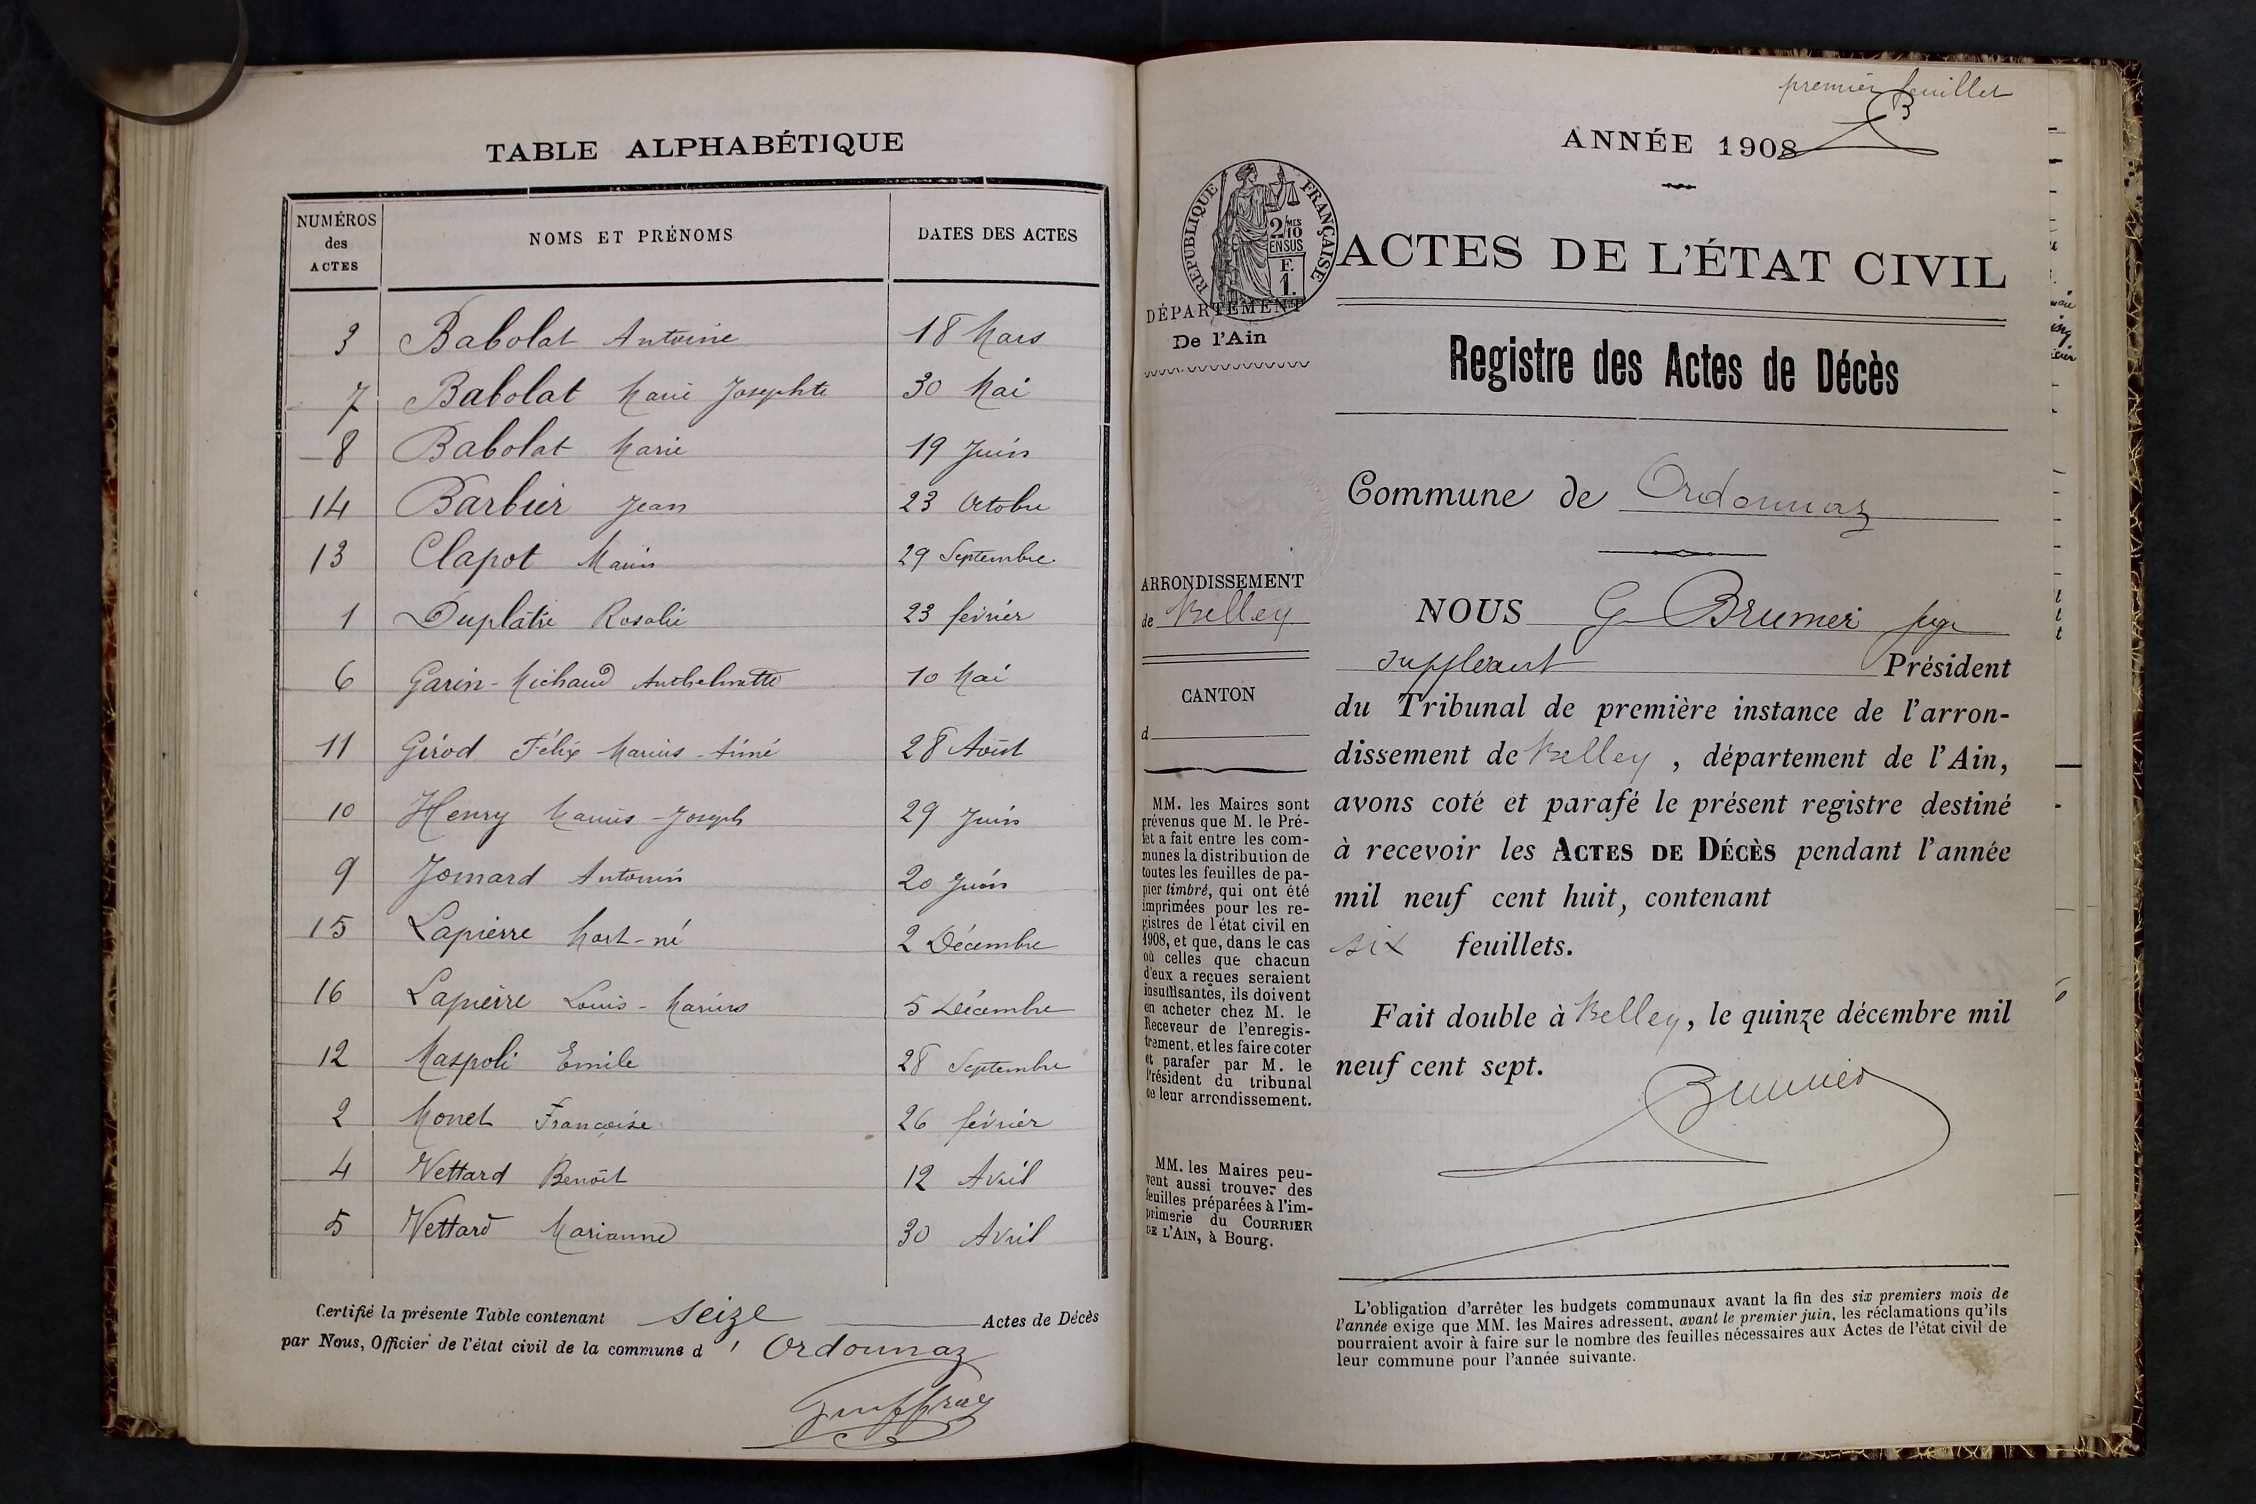 TABLE ALPHABÉTIQUE
NUMÉROS des ACTES
NOMS ET PRÉNOMS
DATES DES ACTES
3 Babolat Antoine 18 Mars
7 Babolat Marie Josephte 30 Mai
8 Babolat Marie 19 Juin
14 Barbier Jean 23 Octobre
13 Clapot Marius 29 Septembre
1 Duplâtre Rosalie 23 février
6 Garin-Michaud Anthelmette 10 Mai
11 Girod Félix Marius-Aimé 28 Août
10 Henry Marius-Joseph 29 Juin
9 Jomard Antonin 20 Juin
15 Lapierre Mort-né 2 Décembre
16 Lapierre Louis-Marius 5 Décembre
12 Maspoli Emile 28 Septembre
2 Monet Françoise 26 février
4 Vettard Benoît 12 Avril
5 Vettard Marianne 30 Avril
Certifié la présente Table contenant seize Actes de Décès
par Nous, Officier de l'état civil de la commune d' Ordonnaz
premier feuillet
ANNÉE 1908
RÉPUBLIQUE FRANÇAISE
2/10 MES
EN SUS
F.
1.
DÉPARTEMENT
De l'Ain
ACTES DE L'ÉTAT CIVIL
Registre des Actes de Décès
Commune de Ordonnaz
ARRONDISSEMENT
de Belley
CANTON
d
MM. les Maires sont
prévenus que M. le Pré-
fet a fait entre les com-
munes la distribution de
toutes les feuilles de pa-
pier timbré, qui ont été
imprimées pour les re-
gistres de l'état civil en
1908, et que, dans le cas
où celles que chacun
d'eux a reçues seraient
insuffisantes, ils doivent
en acheter chez M. le
Receveur de l'enregis-
trement, et les faire coter
et parafer par M. le
Président du tribunal
de leur arrondissement.
MM. les Maires peu-
vent aussi trouver des
feuilles préparées à l'im-
primerie du COURRIER
DE L'AIN, à Bourg.
NOUS G Brunier juge
suppléant Président
du Tribunal de première instance de l'arron-
dissement de Belley, département de l'Ain,
avons coté et parafé le présent registre destiné
à recevoir les ACTES DE DÉCÈS pendant l'année
mil neuf cent huit, contenant
six feuillets.
Fait double à Belley, le quinze décembre mil
neuf cent sept.
Brunier
L'obligation d'arrêter les budgets communaux avant la fin des six premiers mois de
l'année exige que MM. les Maires adressent, avant le premier juin, les réclamations qu'ils
pourraient avoir à faire sur le nombre des feuilles nécessaires aux Actes de l'état civil de
leur commune pour l'année suivante.